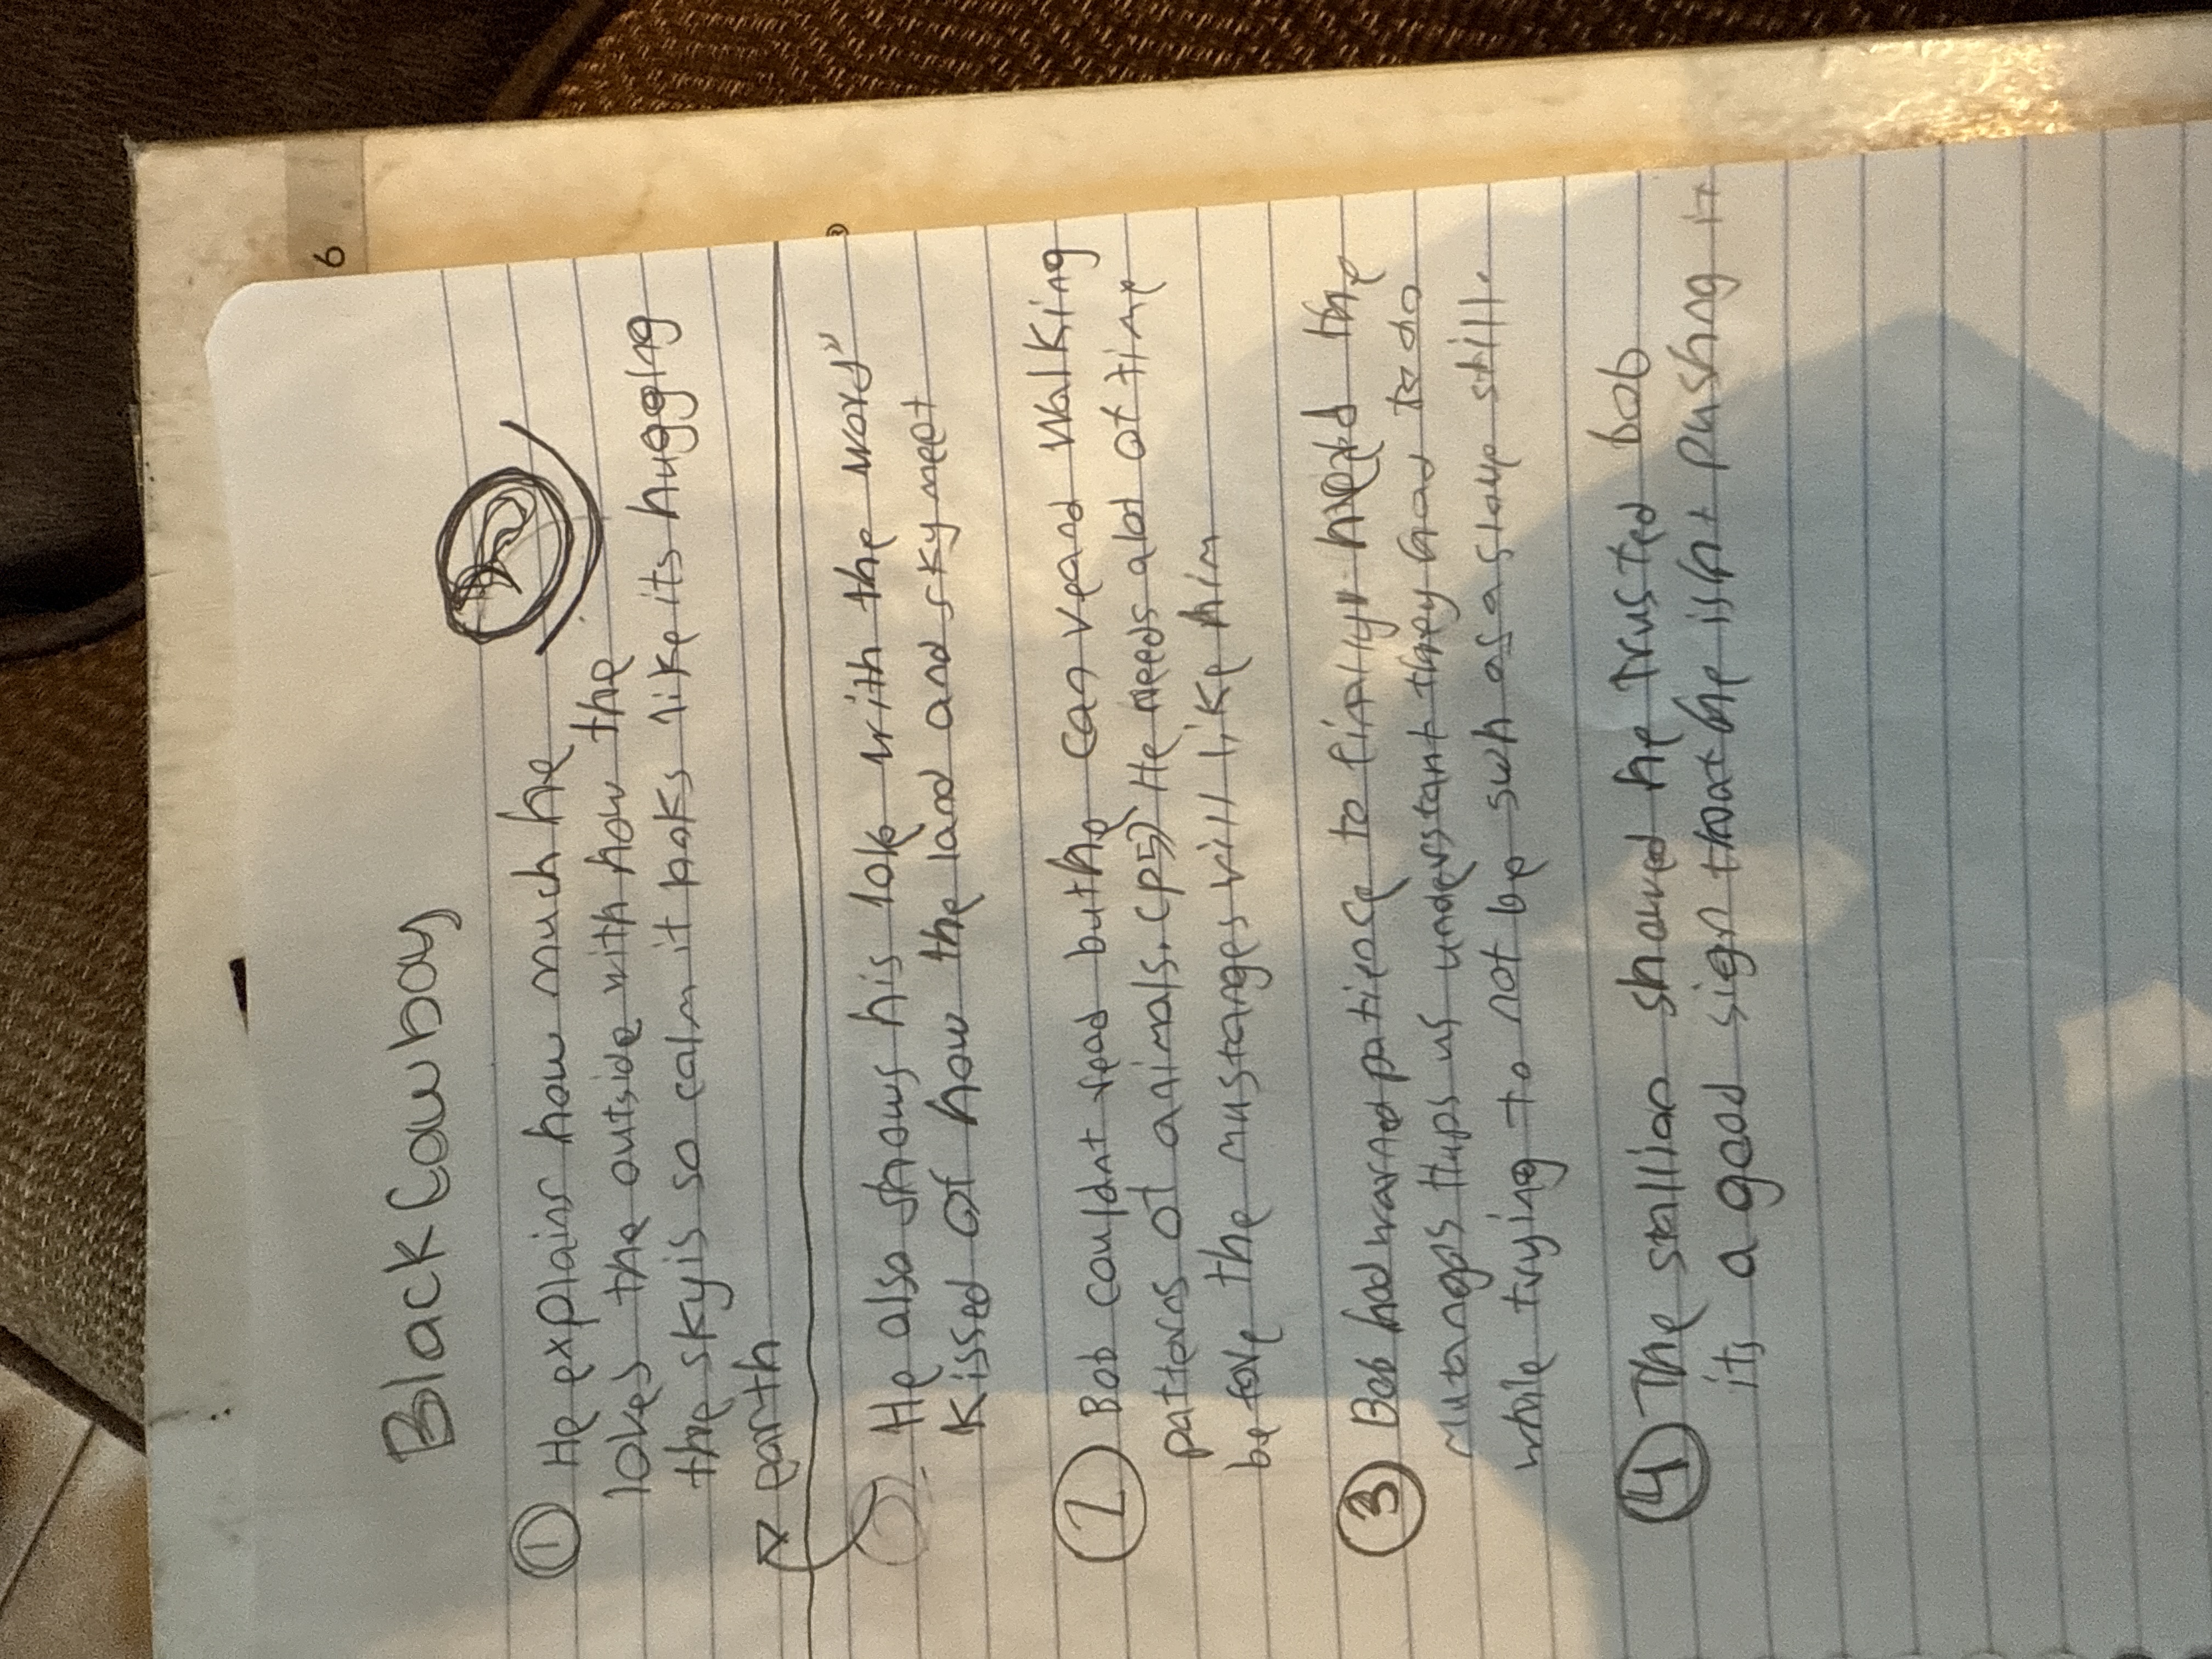 6
Black Cowboy
① He explains how much he
loves the outside with how the
the sky is so calm it looks like its hugging
earth
He also shows his love with the word"
Kissed of how the land and sky meet
2 Bob couldnt read but he can read walking
patterns of animals. (p5) He needs alot of time
before the mustanges will like him
③ Bob had warned patience to finally the
mutanges Hups us understant they had to do
while trying to not be such as a stay still.
④ The stallion showed he trusted bob
its a good sign that he isnt pushing it